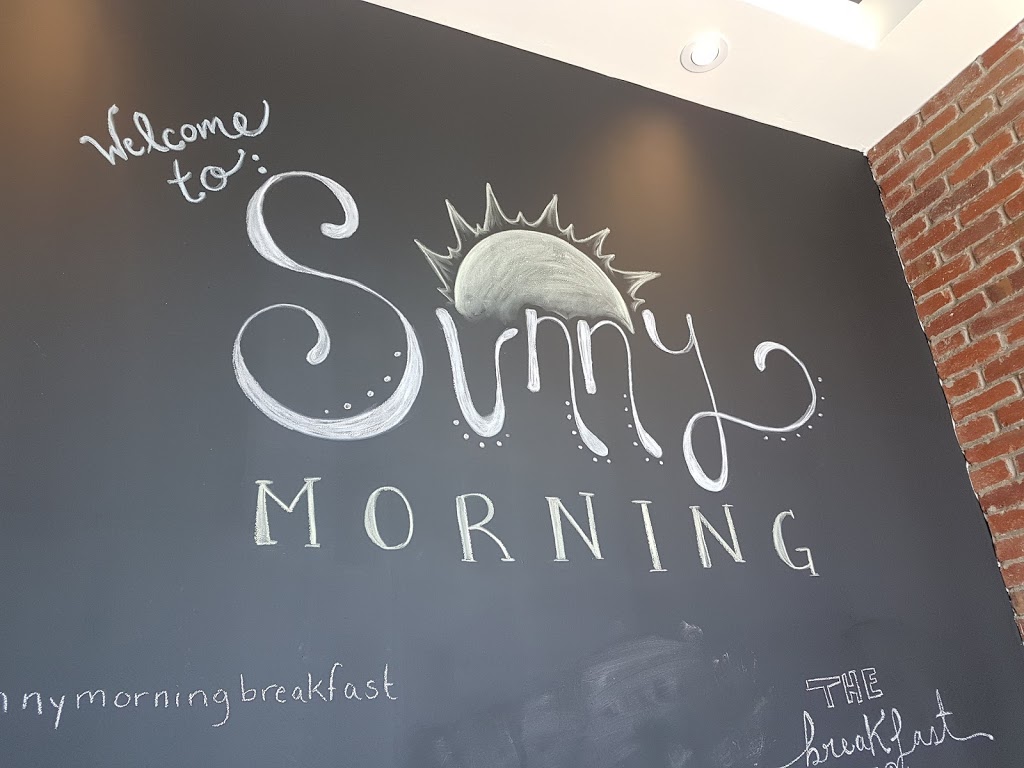 Welcome
to:
Sunny
MORNING
nnymorningbreakfast
THE
breakfast